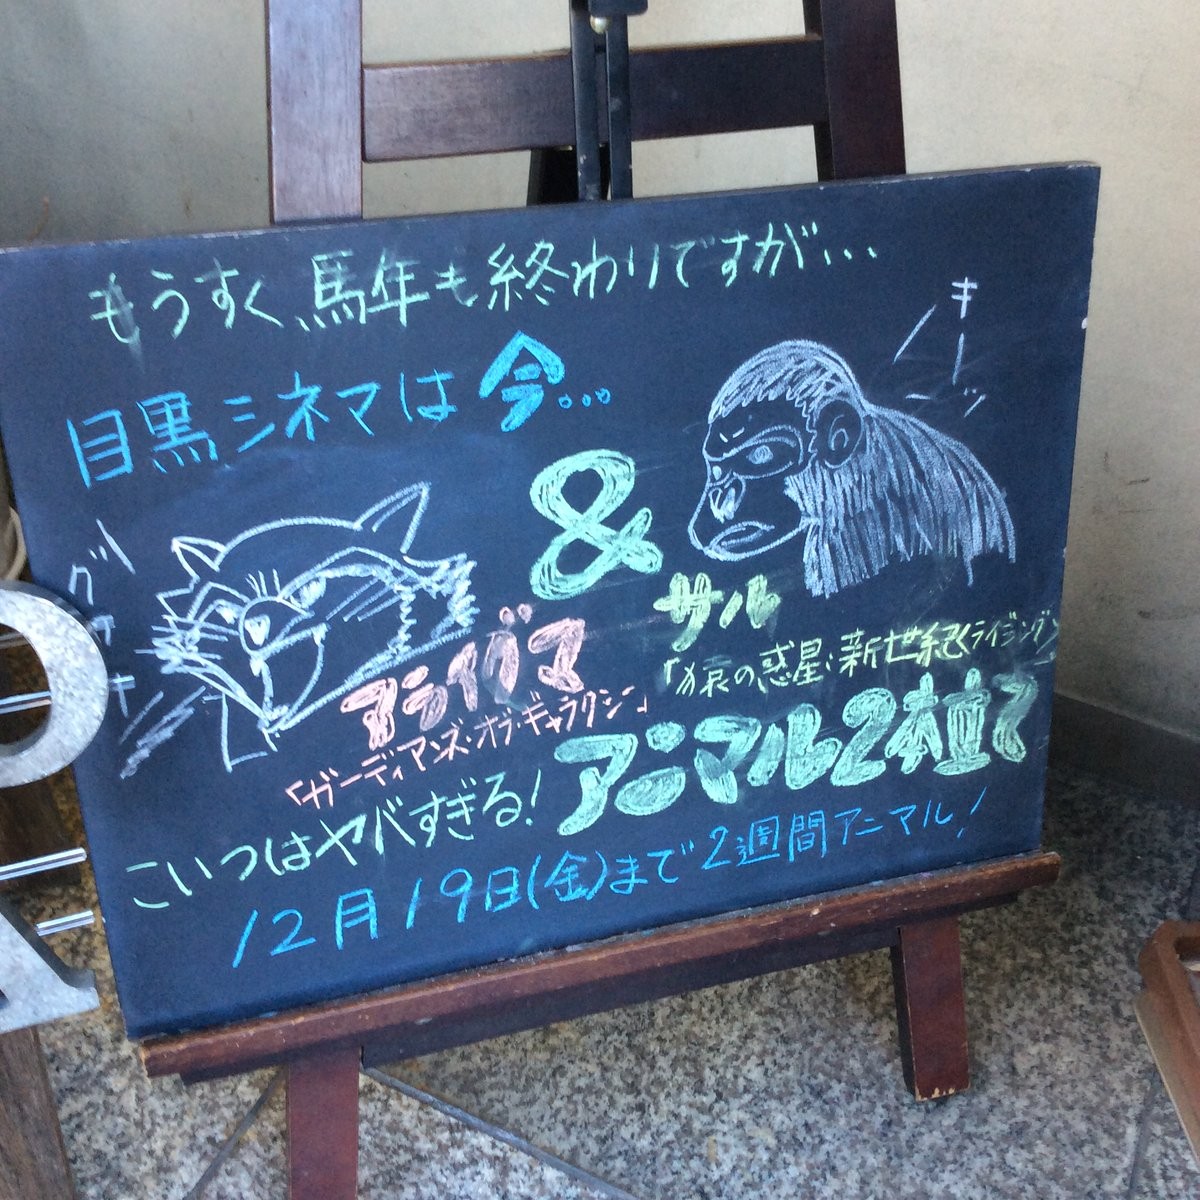 もうすぐ、馬年も終わりですが…
目黒シネマは今…
キーッ
&
グワッキー
アライグマ
「ガーディアンズ・オブ・ギャラクシー」
サル
「猿の惑星:新世紀〈ライジング〉
こいつはヤバすぎる!アニマル2本立て
12月19日(金)まで2週間アニマル!